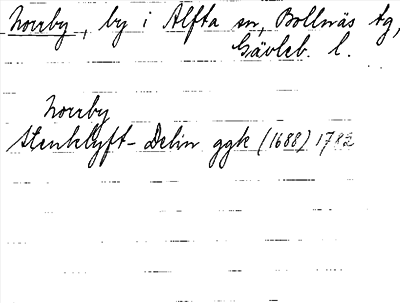 Norrby, by i Alfta sn, Bollnäs tg,
Gävleb. l.
Norrby
Stenklyft-Delin ggk (1688) 1782